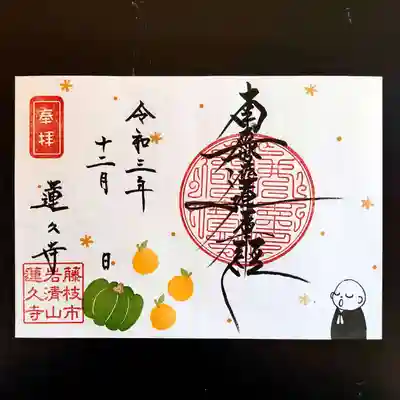 南無妙法蓮華経
令和三年
十二月 日
奉拝
蓮久寺
藤枝市
岩清山
蓮久寺